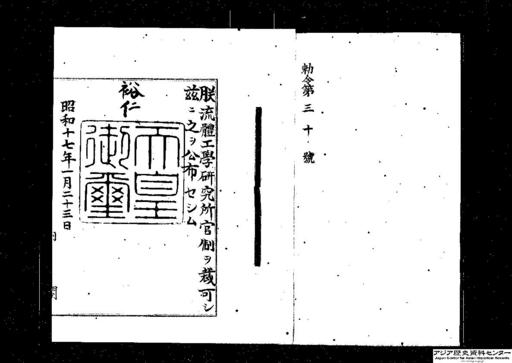 勅令第三十號
朕流體工學研究所官制ヲ裁可シ
茲ニ之ヲ公布セシム
裕仁
天皇
御璽
昭和十七年一月二十三日
内閣
アジア歴史資料センター
Japan Center for Asian Historical Records